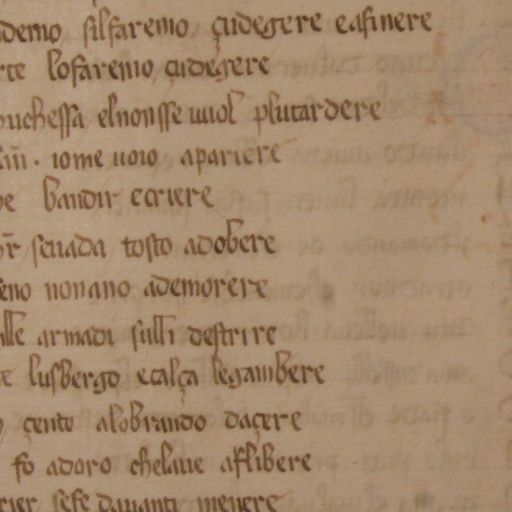 demo silfaremo çudegere easinere
rte lofaremo çudegere
uchessa elnonsse uiuol plutardere
iom̅. iome uoio apariere
e bandir ecriere
r̅ seuada tosto adobere
eno nonano ademorere
alle armadi sulli destrire
e lusbergo ecalça legambere
çento alobrando daçere
fo adoro chelaue aflibere
rier sefe dauanti menere